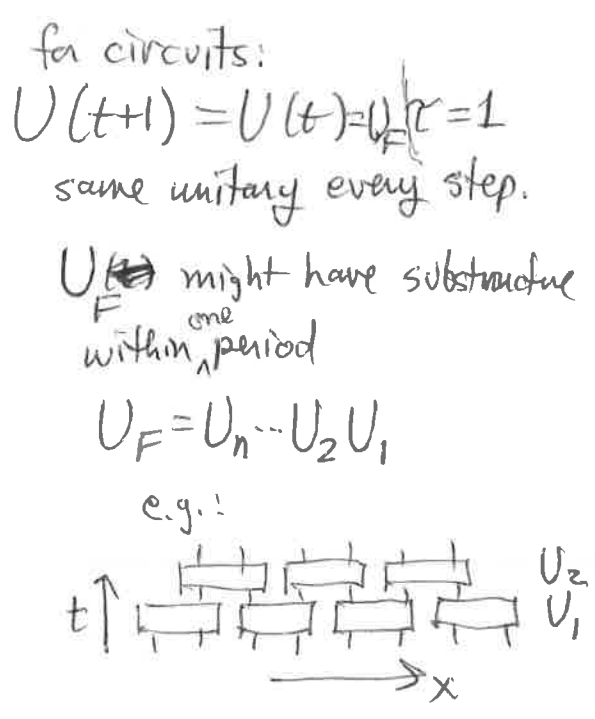 for circuits:
U(t+1) = U(t) = U_F | τ = 1
same unitary every step.
U_F might have substructure
within one period
U_F = U_n ... U_2 U_1
e.g.:
U_2
t U_1
x